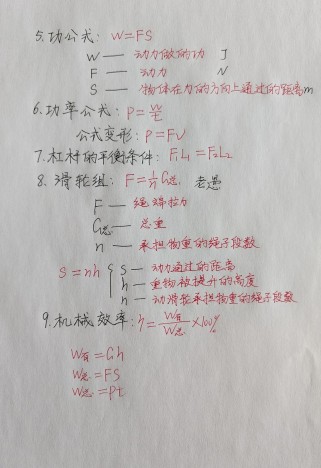 5.功公式: W=FS
W — 动力做的功 J
F — 动力 N
S — 物体在力的方向上通过的距离m
6.功率公式: P=W/t
公式变形: P=FV
7.杠杆的平衡条件: F₁L₁=F₂L₂
8.滑轮组: F=1/n G总 老愚
F — 绳绵拉力
G总 — 总重
n — 承担物重的绳子段数
S=nh { S — 动力通过的距离
h — 重物被提升的高度
n — 动滑轮承担物重的绳子段数
9.机械效率: η=W有/W总×100%
W有=Gh
W总=FS
W总=Pt